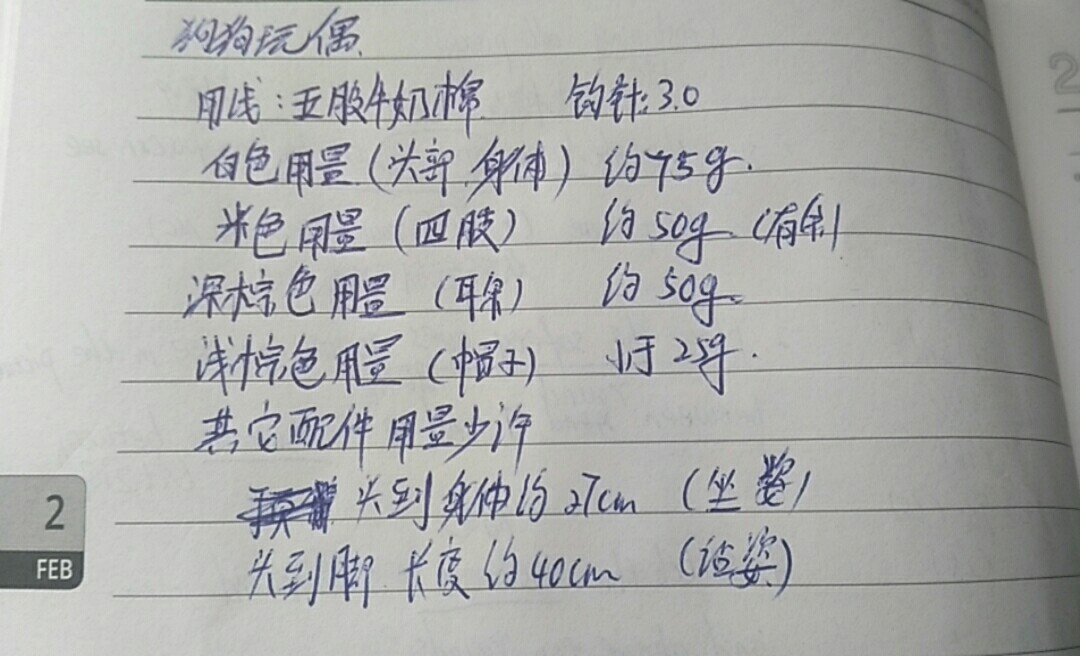 狗狗玩偶
用线：五股牛奶棉 钩针:3.0
白色用量（头部、身体）约75g.
米色用量（四肢） 约50g（有余）
深棕色用量（耳朵） 约50g.
浅棕色用量（帽子） 小于25g.
其它配件用量少许
头到身体约27cm （坐姿）
头到脚 长度约40cm （站姿）
2
FEB